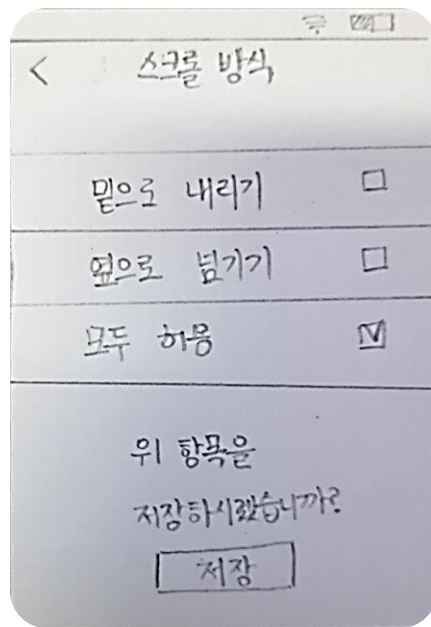 < 스크롤 방식
밑으로 내리기
옆으로 넘기기
모두 허용
위 항목을
저장하시겠습니까?
저장